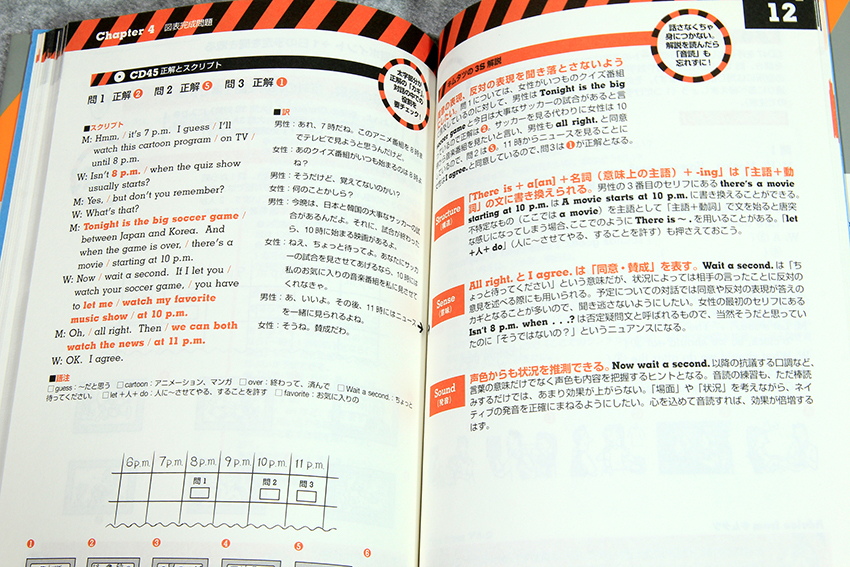 Chapter 4 図表完成問題
CD45 正解とスクリプト
太字部分が
正解の「カギ」。
対話の中での
役割を
要チェック!
問1 正解❷ 問2 正解❺ 問3 正解❶
■スクリプト
M: Hmm, / it's 7 p.m. I guess / I'll
watch this cartoon program / on TV /
until 8 p.m.
W: Isn't 8 p.m. / when the quiz show
usually starts?
M: Yes, / but don't you remember?
W: What's that?
M: Tonight is the big soccer game /
between Japan and Korea. And
when the game is over, / there's a
movie / starting at 10 p.m.
W: Now / wait a second. If I let you /
watch your soccer game, / you have
to let me / watch my favorite
music show / at 10 p.m.
M: Oh, / all right. Then / we can both
watch the news / at 11 p.m.
W: OK. I agree.
■訳
男性:あれ、7時だね。このアニメ番組を8時ま
でテレビで見ようと思うんだけど。
女性:あのクイズ番組がいつも始まるのは8時よ
ね?
男性:そうだけど、覚えてないのかい?
女性:何のことかしら?
男性:今晩は、日本と韓国の大事なサッカーの試
合があるんだよ。それに、試合が終わった
ら、10時に始まる映画があるよ。
女性:ねえ、ちょっと待ってよ。あなたにサッカ
ーの試合を見させてあげるなら、10時には
私のお気に入りの音楽番組を私に見させて
くれなきゃ。
男性:あ、いいよ。その後、11時にはニュース
を一緒に見られるよね。
女性:そうね。賛成だわ。
■語注
□guess:~だと思う □cartoon:アニメーション、マンガ □over:終わって、済んで □Wait a second.:ちょっと
待ってください。 □let+人+do:人に~させてやる、することを許す □favorite:お気に入りの
6p.m. 7p.m. 8p.m. 9p.m. 10p.m. 11p.m.
問1 問2 問3
❶ ❷ ❸ ❹ ❺ ❻
12
話さなくちゃ
身につかない。
解説を読んだら
「音読」も
忘れずに!
キムタツの3S解説
の表現、反対の表現を聞き落とさないよう
Tonight is the big
soccer game
all right.
I agree.と同意しているので、問3は❶が正解となる。
Structure
(構造)
「There is + a[an] +名詞(意味上の主語)+ -ing」は「主語+動
詞」の文に書き換えられる。男性の3番目のセリフにあるthere's a movie
starting at 10 p.m.はA movie starts at 10 p.m.に書き換えることができる。
不特定なもの(ここではa movie)を主語として「主語+動詞」で文を始めると唐突
な感じになってしまう場合、ここでのようにThere is ~.を用いることがある。「let
+人+do」(人に~させてやる、することを許す)も押さえておこう。
Sense
(意味)
All right. と I agree. は「同意・賛成」を表す。Wait a second.は「ち
ょっと待ってください」という意味だが、状況によっては相手の言ったことに反対の
意見を述べる際にも用いられる。予定についての対話では同意や反対の表現が答えの
カギとなることが多いので、聞き逃さないようにしたい。女性の最初のセリフにある
Isn't 8 p.m. when . . .?は否定疑問文と呼ばれるもので、当然そうだと思ってい
たのに「そうではないの?」というニュアンスになる。
Sound
(発音)
声色からも状況を推測できる。Now wait a second.以降の抗議する口調など、
言葉の意味だけでなく声色も内容を把握するヒントとなる。音読の練習も、ただ棒読
みするだけでは、あまり効果が上がらない。「場面」や「状況」を考えながら、ネイ
ティブの発音を正確にまねるようにしたい。心を込めて音読すれば、効果が倍増する
はず。